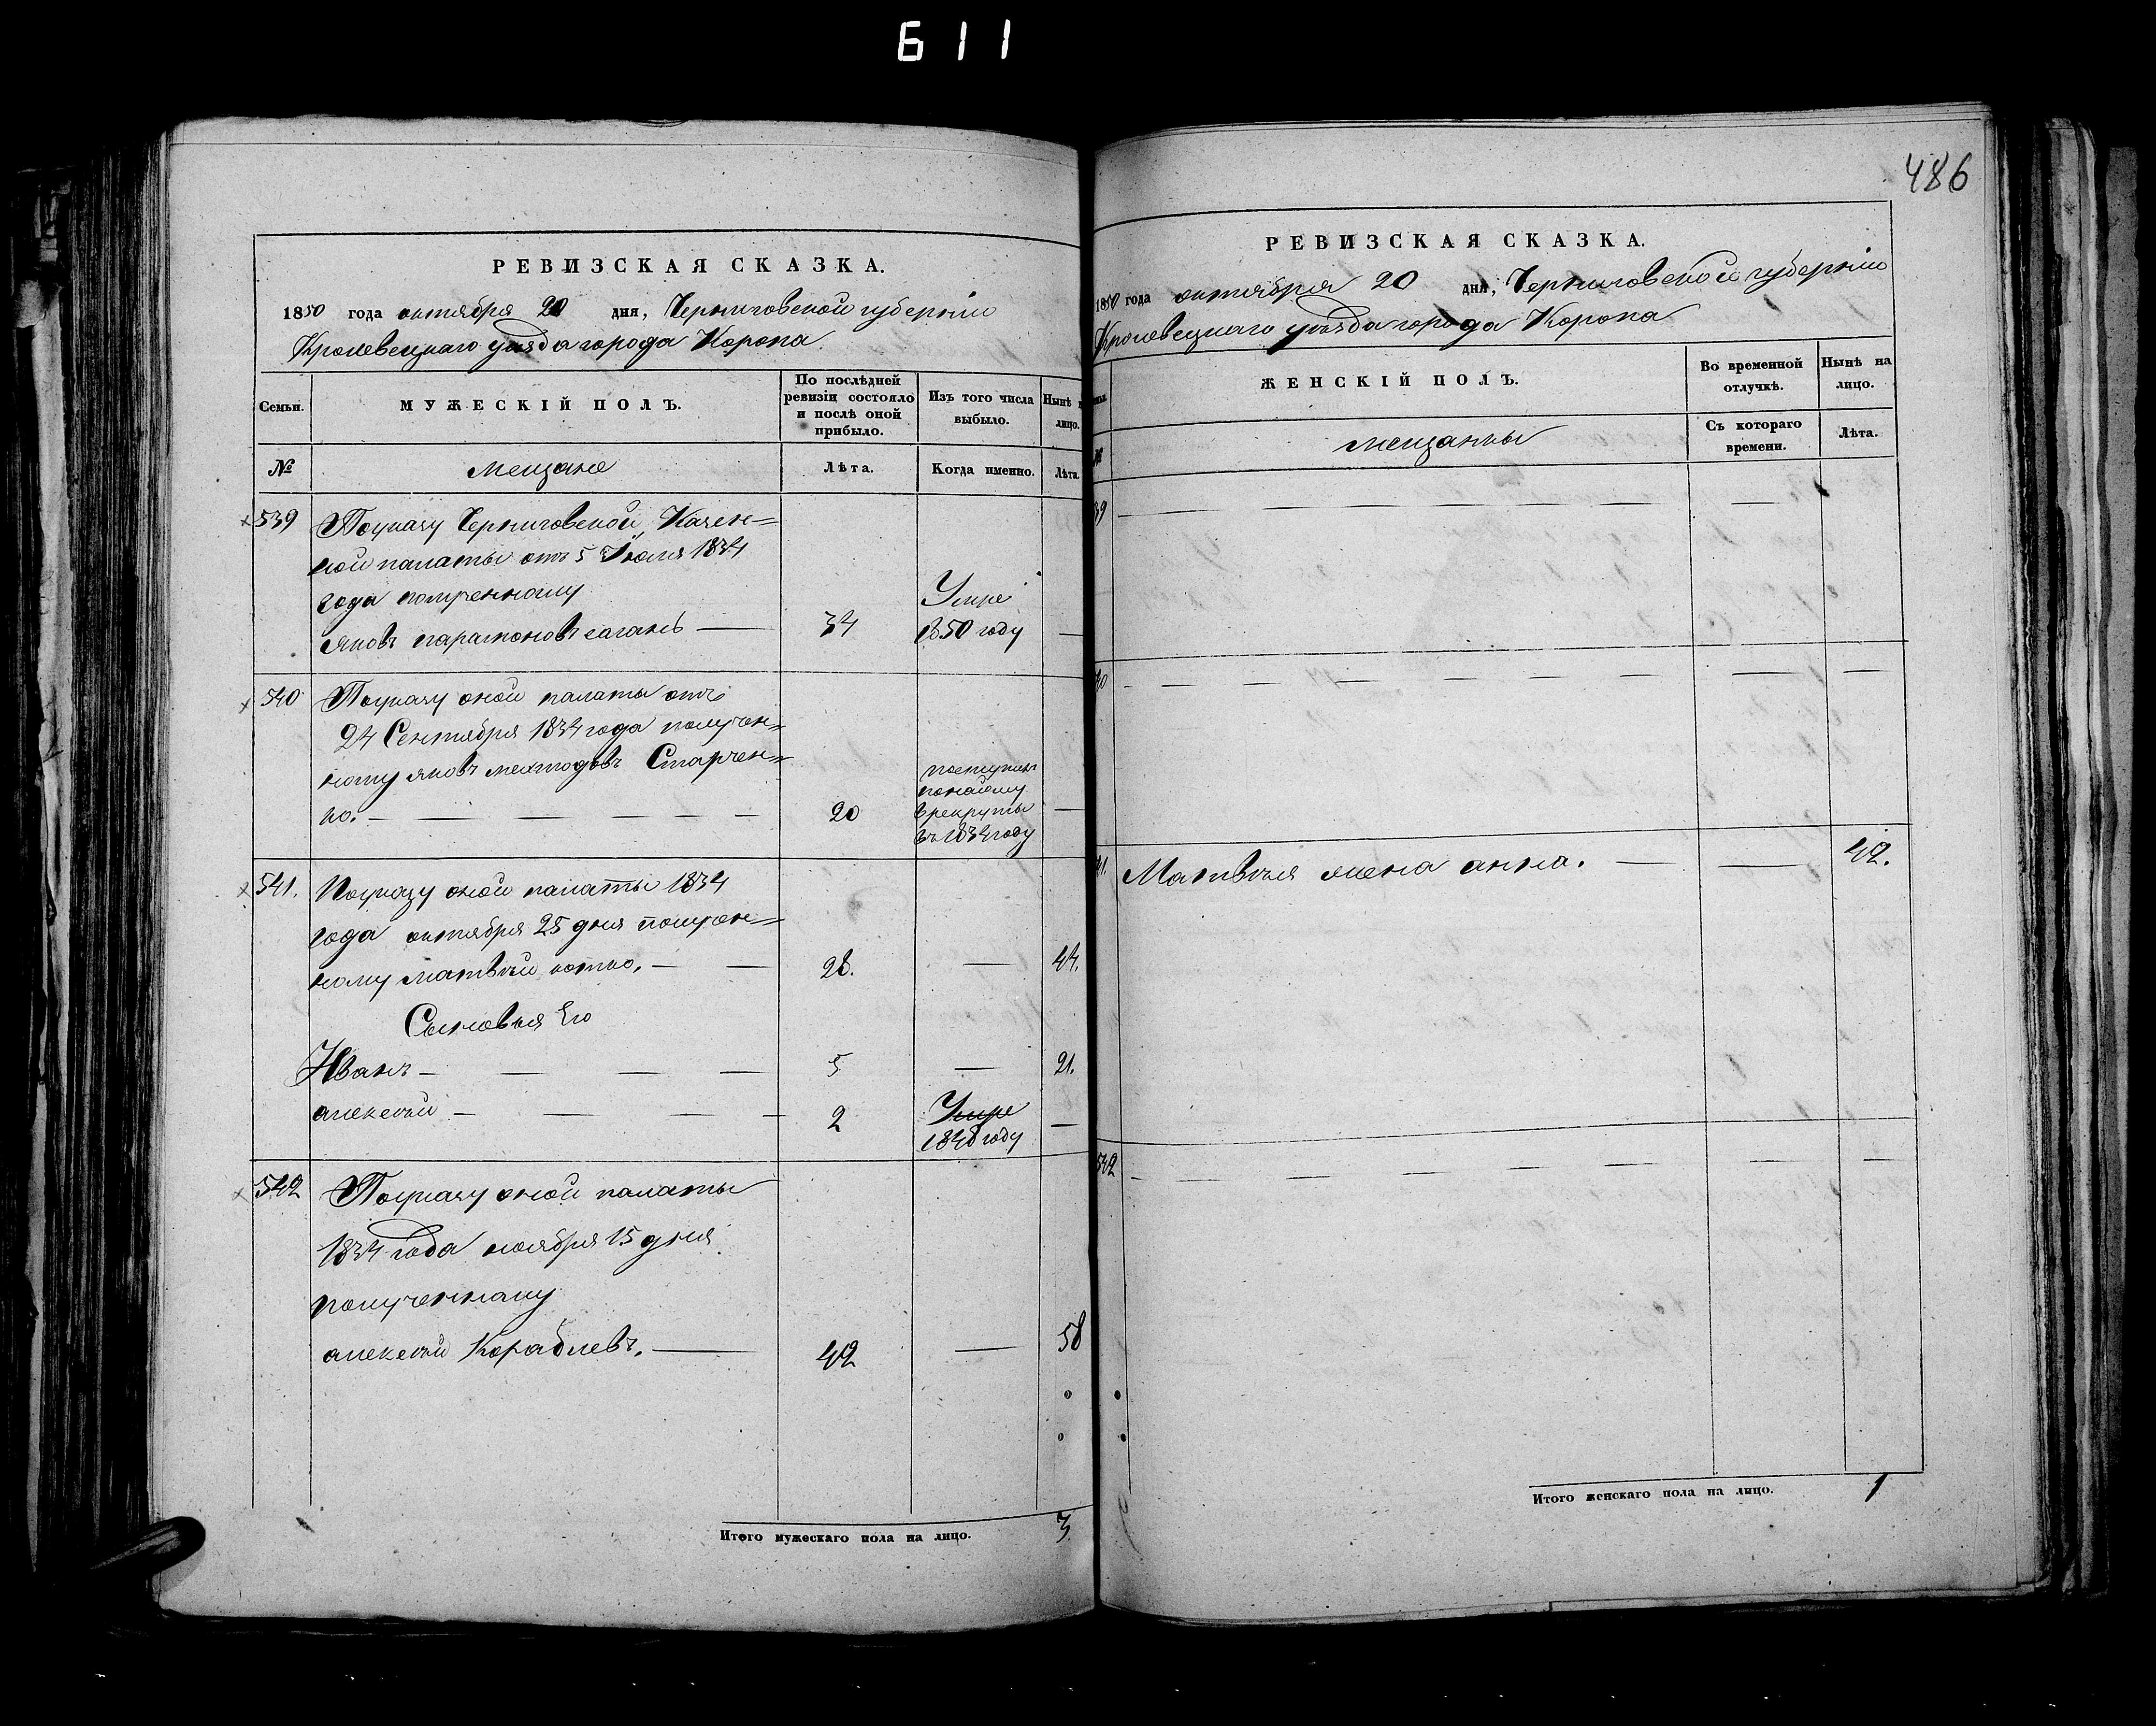 611
486
РЕВИЗСКАЯ СКАЗКА.
1850 года октября 20 дня, Черниговской губерніи
Кролевецкаго уѣзда города Коропа
Семьи.
МУЖЕСКІЙ ПОЛЪ.
По послѣдней ревизіи состояло и послѣ оной прибыло.
Изъ того числа выбыло.
Нынѣ на лицо.
№
мещане
Лѣта.
Когда именно.
Лѣта.
539 Поуказу Черниговской Казен=
ной палаты отъ 5 Июля 1834
года полученному
яковъ парамоновъ саганъ — 34 Умре 1850 году —
540 Поуказу оной палаты отъ
24 Сентября 1834 года получен=
ному яковъ Старчен=
ко. — 20 поступилъ
врекруты
въ 1834 году —
541. Поуказу оной палаты 1834
года октября 25 дня получен=
ному матвѣй котко. — 28. — 44.
Сыновья Его
Иванъ — 5 — 21.
алексѣй — 2 Умре
1848 году —
542 Поуказу оной палаты
1834 года ноября 15 дня
полученному
алексѣй Кораблевъ. — 42 — 58
Итого мужескаго пола на лицо. 3
РЕВИЗСКАЯ СКАЗКА.
1850 года октября 20 дня, Черниговской губерніи
Кролевецкаго уѣзда города Коропа
ЖЕНСКІЙ ПОЛЪ.
Во временной отлучкѣ.
Нынѣ на лицо.
№
мещанки
Съ котораго времени.
Лѣта.
39 — — —
40 — — —
41. Матвѣя жена анна. — — 42.
542 — — —
Итого женскаго пола на лицо. 1